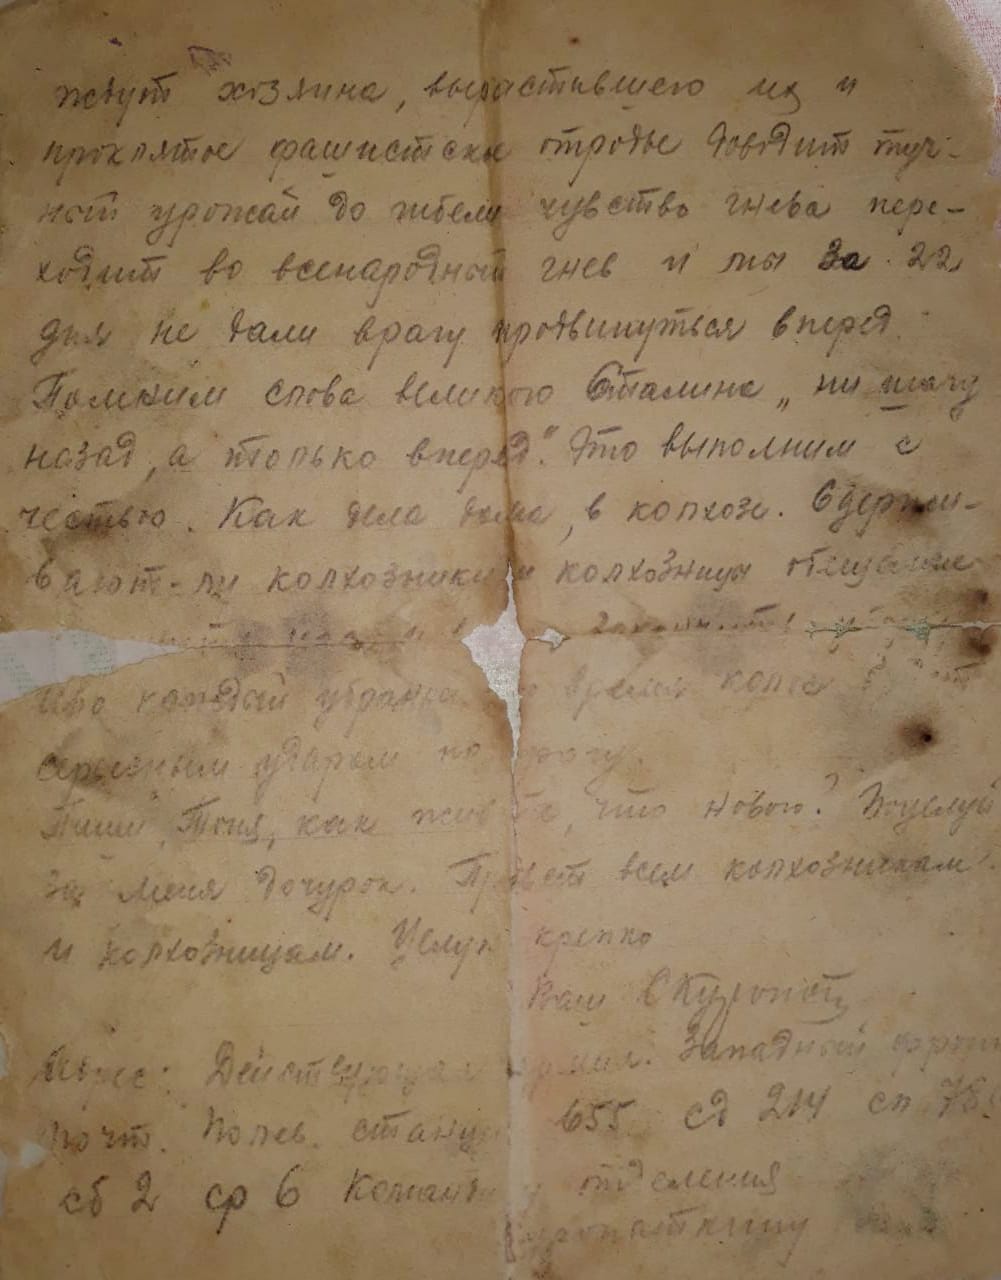 ждут хозяина, вырастившего их и
проклятое фашистское отродье доводит туч-
ный урожай до гибели чувство гнева пере-
ходит во всенародный гнев и мы за 22
дня не дали врагу продвинуться вперед.
Помним слова великого Сталина „ни шагу
назад, а только вперед". Это выполним с
честью. Как дела дома, в колхозе. Сдержи-
вают-ли колхозники и колхозницы обещание
каждый время колос
серьезным ударом по врагу.
Пиши, Тоня, как живете, что нового? Поцелуй
за меня дочурок. Привет всем колхозникам
и колхозницам. Целую крепко
Ваш С Куропат
Адрес: Действующая армия. Западный фронт
Почт. Полев. станц 655 сд 214 сп
сб 2 ср 6 Команд отделения